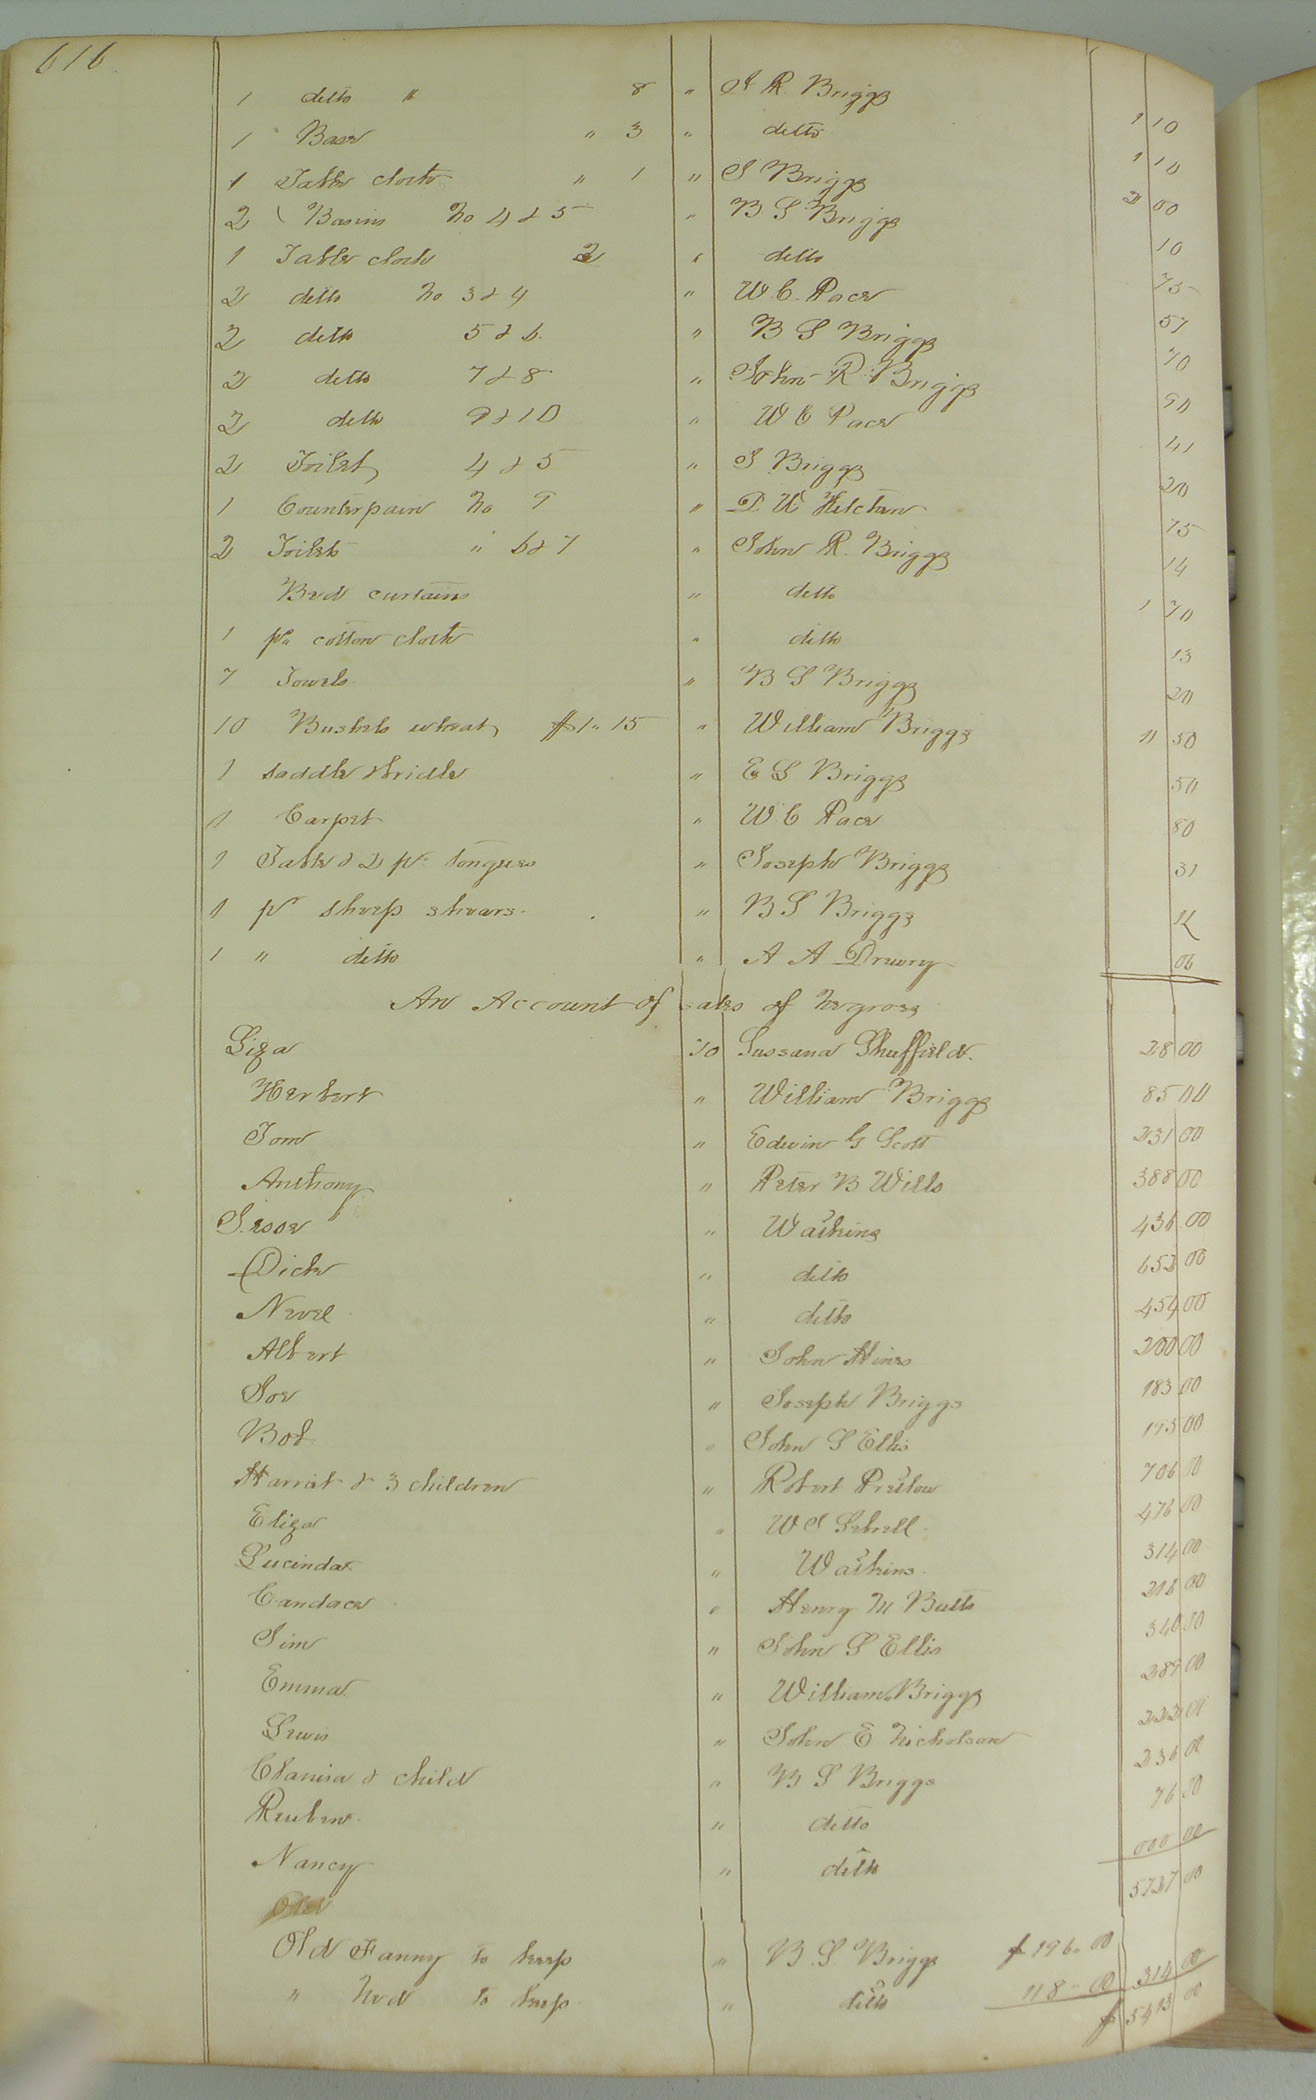 616
1 ditto " 8 " J R Briggs
1 Base " 3 " ditto 1 10
1 Table cloth " 1 " S Briggs 1 10
2 Basins No 4 & 5 " B S Briggs 2 00
1 Table cloth 2 " ditto 10
2 ditto No 3 & 4 " W. C. Pace 75
2 ditto 5 & 6 " B S Briggs 57
2 ditto 7 & 8 " John R. Briggs 70
2 ditto 9 & 10 " W C Pace 90
2 Toilet 4 & 5 " S Briggs 41
1 Counterpain No 9 " 20
2 Toilets " 6 & 7 " John R. Briggs 75
Bed curtains " ditto 14
1 ps cotton cloth " ditto 1 70
7 Towels " B S Briggs 13
10 Bushels wheat $1.15 " William Briggs 11 50
1 saddle & bridle " E S Briggs 50
1 Carpet " W. C Pace 80
1 Table & 2 pr tongues " Joseph Briggs 31
1 pr sheep shears " B S Briggs
1 " ditto " A A Drewry 06
An Account of sales of negroes
Liza To Sussana Shuffield. 28 00
Herbert " William Briggs 85 00
Tom " Edwin G Scott 231 00
Anthony " Peter B Wills 388 00
" Watkins 436 00
Dick " ditto 652 00
" ditto 454 00
Albert " John Hines 200 00
Joe " Joseph Briggs 183 00
Bob " John S Ellis 195 00
Harriet & 3 children " Robert Pretlow 706 00
Eliza " W S 476 00
Lucinda " Watkins 314 00
Candace " Henry M Butts 216 00
Jim " John S Ellis 340 00
Emma " William Briggs 289 00
Lewis " John E Nicholson 222 00
& child " B S Briggs 236 00
Reuben " ditto 76 00
Nancy " ditto 000 00
5727 00
Old Fanny to keep " B. S Briggs $196.00
" Ned to keep " ditto 118-00 314 00
$5413 00